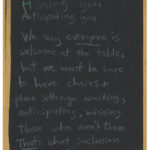 Missing you
Anticipating you
We say everyone is
welcome at the table,
but we must be sure
to have chairs &
place settings waiting,
anticipating, missing
those who aren't there
That's what inclusion